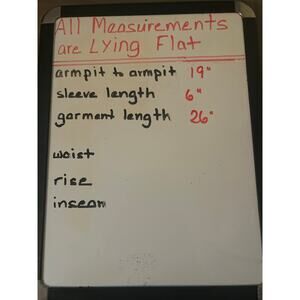 All Measurements
are Lying Flat
armpit to armpit 19"
sleeve length 6"
garment length 26"
waist
rise
inseam